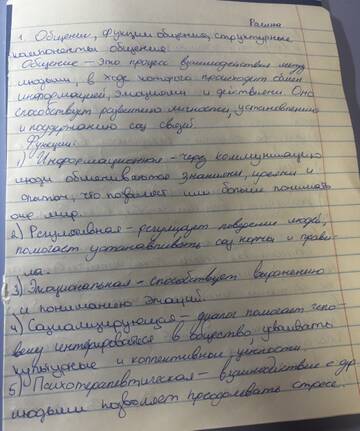 Рагина
1. Общение, функции общения, структурные
компоненты общения.
Общение – это процесс взаимодействия между
людьми, в ходе которого происходит обмен
информацией, эмоциями и действиями. Оно
способствует развитию личности, установлению
и поддержанию соц связей.
Функции:
1) Информационная – через коммуникацию
люди обмениваются знаниями, идеями и
опытом, что позволяет им больше понимать
мир.
2) Регулятивная – регулирует поведение людей,
помогает устанавливать соц нормы и прави-
ла.
3) Эмоциональная – способствует выражению
и пониманию эмоций.
4) Социализирующая – помогает чело-
веку интегрироваться в общество, усваивать
культурные и коллективные ценности.
5) Психотерапевтическая – взаимодействие с др
людьми позволяет преодолевать стресс.